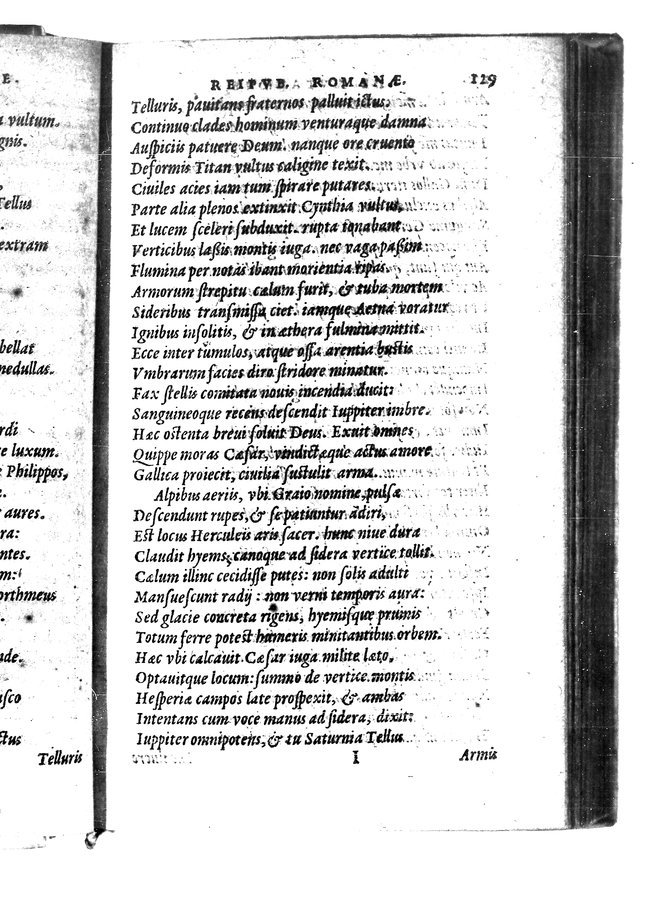 E.
a vultum.
ignis.
Tellus
extram
bellat
medullas.
rdi
re luxum.
e Philippos,
aures.
ra:
entes.
m:
orthmeus
nde.
usco
ctus
Telluris
REIPVB. ROMANÆ. 129
Telluris, pauitans fraternos palluit ictus.
Continuo clades hominum venturaque damna
Auſpiciis patuere Deum. nanque ore cruento
Deformis Titan vultus caligine texit.
Ciuiles acies iam tum ſpirare putares.
Parte alia plenos extinxit Cynthia vultus,
Et lucem ſceleri ſubduxit. rupta tonabant
Verticibus laſſis montis iuga. nec vaga paſſim
Flumina per notas ibant morientia ripas.
Armorum ſtrepitu cælum furit, & tuba mortem
Sideribus tranſmiſſa ciet. iamque Aetna voratur
Ignibus inſolitis, & in æthera fulmina mittit.
Ecce inter tumulos, atque oſſa arentia buſtis
Vmbrarum facies diro ſtridore minatur.
Fax ſtellis comitata nouis incendia ducit:
Sanguineoque recens deſcendit Iuppiter imbre.
Hæc oſtenta breui ſoluit Deus. Exuit omnes
Quippe moras Cæſar, vindictæque actus amore
Gallica proiecit, ciuilia ſuſtulit arma.
Alpibus aeriis, vbi Graio nomine pulſæ
Deſcendunt rupes, & ſe patiuntur adiri,
Eſt locus Herculeis aris ſacer. hunc niue dura
Claudit hyems, canoque ad ſidera vertice tollit.
Cælum illinc cecidiſſe putes: non ſolis adulti
Manſueſcunt radij : non verni temporis aura:
Sed glacie concreta rigens, hyemiſque pruinis
Totum ferre poteſt humeris minitantibus orbem.
Hæc vbi calcauit Cæſar iuga milite læto,
Optauitque locum: ſummo de vertice montis
Heſperiæ campos late proſpexit, & ambas
Intentans cum voce manus ad ſidera, dixit:
Iuppiter omnipotens, & tu Saturnia Tellus
I Armis